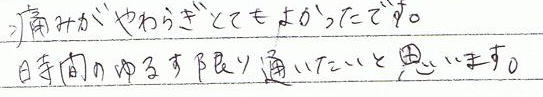 痛みがやわらぎとてもよかったです。
時間のゆるす限り通いたいと思います。